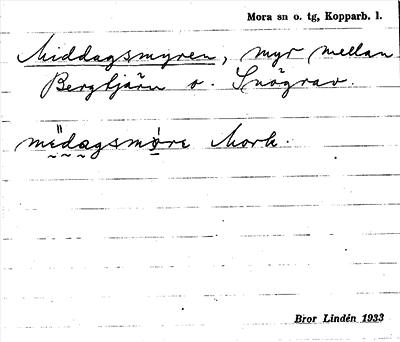 Mora sn o. tg, Kopparb. l.
Middagsmyren, myr mellan
Bergtjärn o. Snögrav.
mödagsmøre Mork.
Bror Lindén 1933